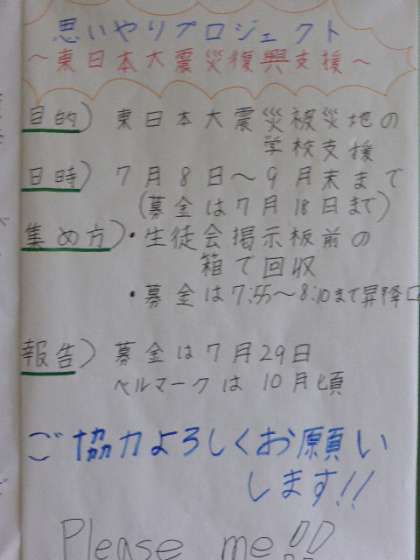 思いやりプロジェクト
～東日本大震災復興支援～
目的) 東日本大震災被災地の
学校支援
日時) 7月8日～9月末まで
(募金は7月18日まで)
集め方)・生徒会掲示板前の
箱で回収
・募金は7:55～8:10まで昇降口
報告) 募金は7月29日
ベルマークは10月頃
ご協力よろしくお願い
します!!
Please me!!